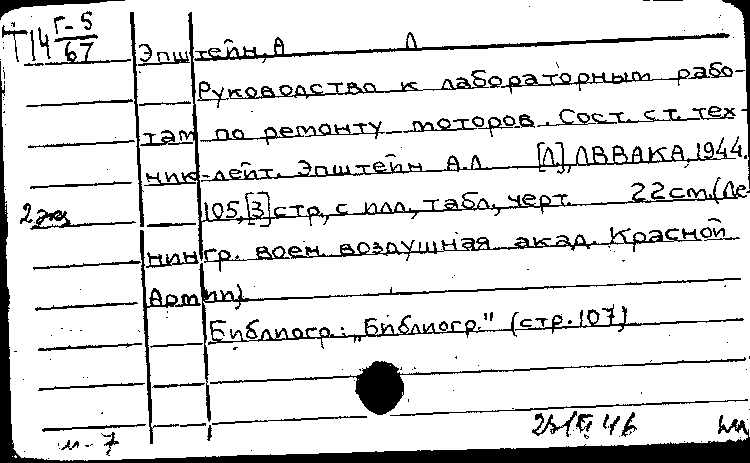 Т14 Г-5/67
Эпштейн, А Л
Руководство к лабораторным рабо-
там по ремонту моторов. Сост. ст. тех-
ник-лейт. Эпштейн А.Л [Л], ЛВВАКА, 1944.
2 экз 105, [3] стр, с илл, табл, черт. 22 см. (Ле
нингр. воен. воздушная акад. Красной
Армии)
Библиогр.: „Библиогр." (стр. 107)
м-7